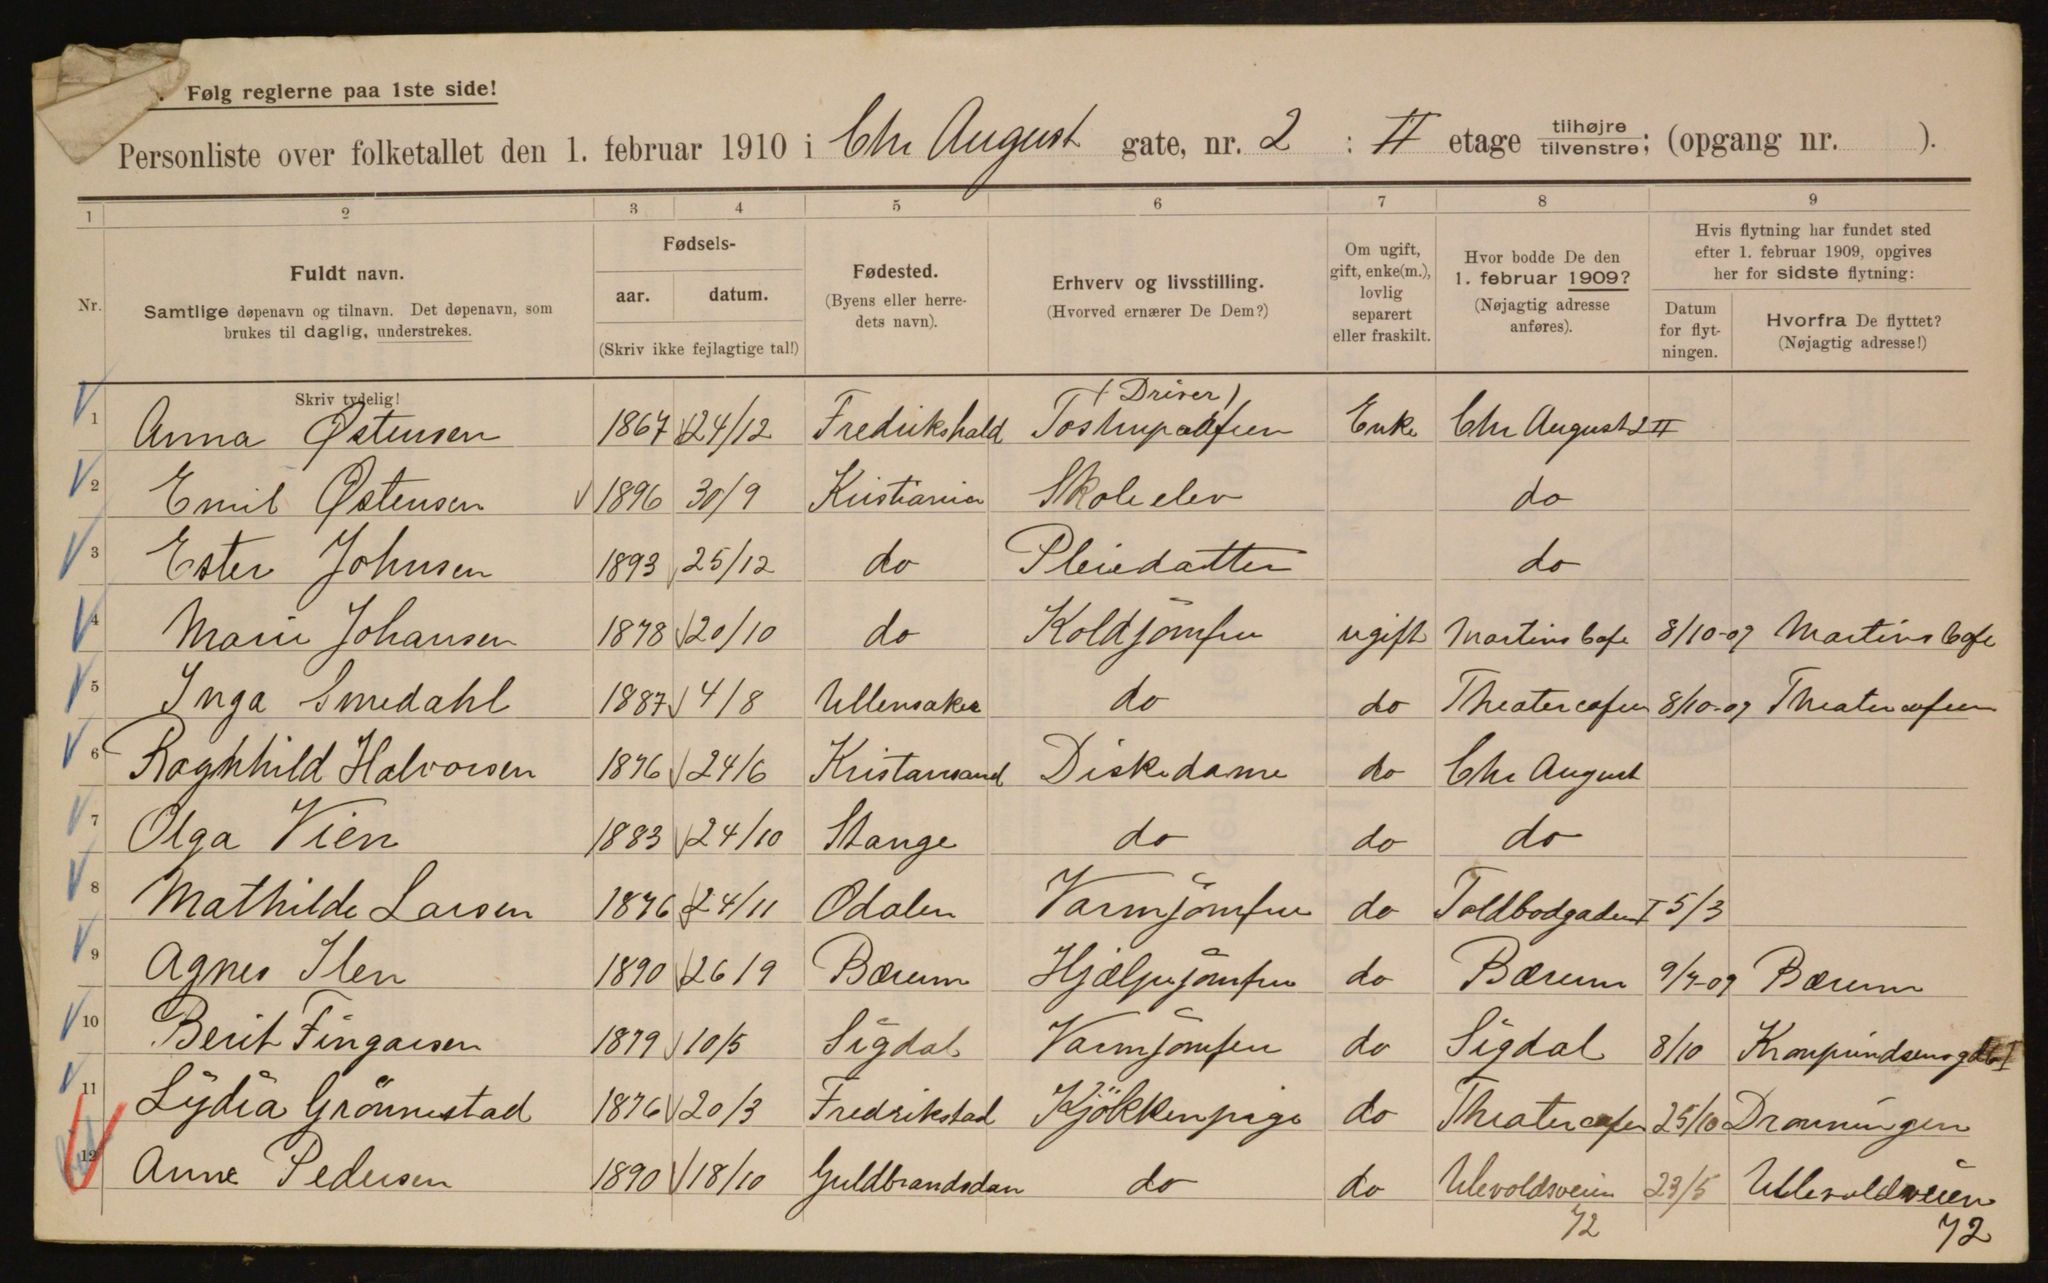 Følg reglerne paa 1ste side!
Personliste over folketallet den 1. februar 1910 i Chr August gate, nr. 2 : II etage tilhøjre tilvenstre; (opgang nr. ).
1 2 3 4 5 6 7 8 9
Nr.
Fuldt navn.
Samtlige døpenavn og tilnavn. Det døpenavn, som
brukes til daglig, understrekes.
Fødsels-
aar. datum.
(Skriv ikke fejlagtige tal!)
Fødested.
(Byens eller herre-
dets navn).
Erhverv og livsstilling.
(Hvorved ernærer De Dem?)
Om ugift,
gift, enke(m.),
lovlig
separert
eller fraskilt.
Hvor bodde De den
1. februar 1909?
(Nøjagtig adresse
anføres).
Hvis flytning har fundet sted
efter 1. februar 1909, opgives
her for sidste flytning:
Datum
for flyt-
ningen.
Hvorfra De flyttet?
(Nøjagtig adresse!)
Skriv tydelig!
(Driver)
1 Anna Østensen 1867 24/12 Fredrikshald Tostrupcafeen Enke Chr August 2 II
2 Emil Østensen 1896 30/9 Kristiania Skoleelev do
3 Ester Johnsen 1893 25/12 do Pleiedatter do
4 Marie Johansen 1878 20/10 do Koldjomfru ugift Martins Cafe 8/10-09 Martins Cafe
5 Inga Smedahl 1887 4/8 Ullensaker do do Theatercafeen 8/10-09 Theatercafeen
6 Raghhild Halvorsen 1876 24/6 Kristansand Diskedame do Chr August
7 Olga Vien 1883 24/10 Stange do do do
8 Mathilde Larsen 1876 24/11 Odalen Varmjomfru do Toldbodgaden I 5/3
9 Agnes Ilen 1890 26/9 Bærum Hjælpejomfru do Bærum 9/4-09 Bærum
10 Berit Fingarsen 1879 10/5 Sigdal Varmjomfru do Sigdal 8/10
11 Lydia Grönnestad 1876 20/3 Fredrikstad Kjökkenpige do Theatercafeen 25/10 Dronningen
12 Anne Pedersen 1890 18/10 Guldbrandsdan do do Ulevoldsveien 23/5 Ullevoldsveien
72 72